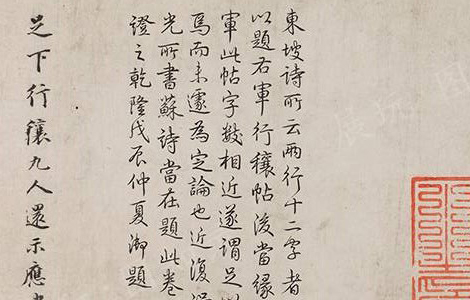 東坡詩所云兩行十二字者
以題右軍行穰帖後當緣
軍此帖字數相近遂謂足以
焉而未遽為定論也近復得
光所書蘇詩當在題此卷
證之乾隆戊辰仲夏御題
足下行穰九人還示應